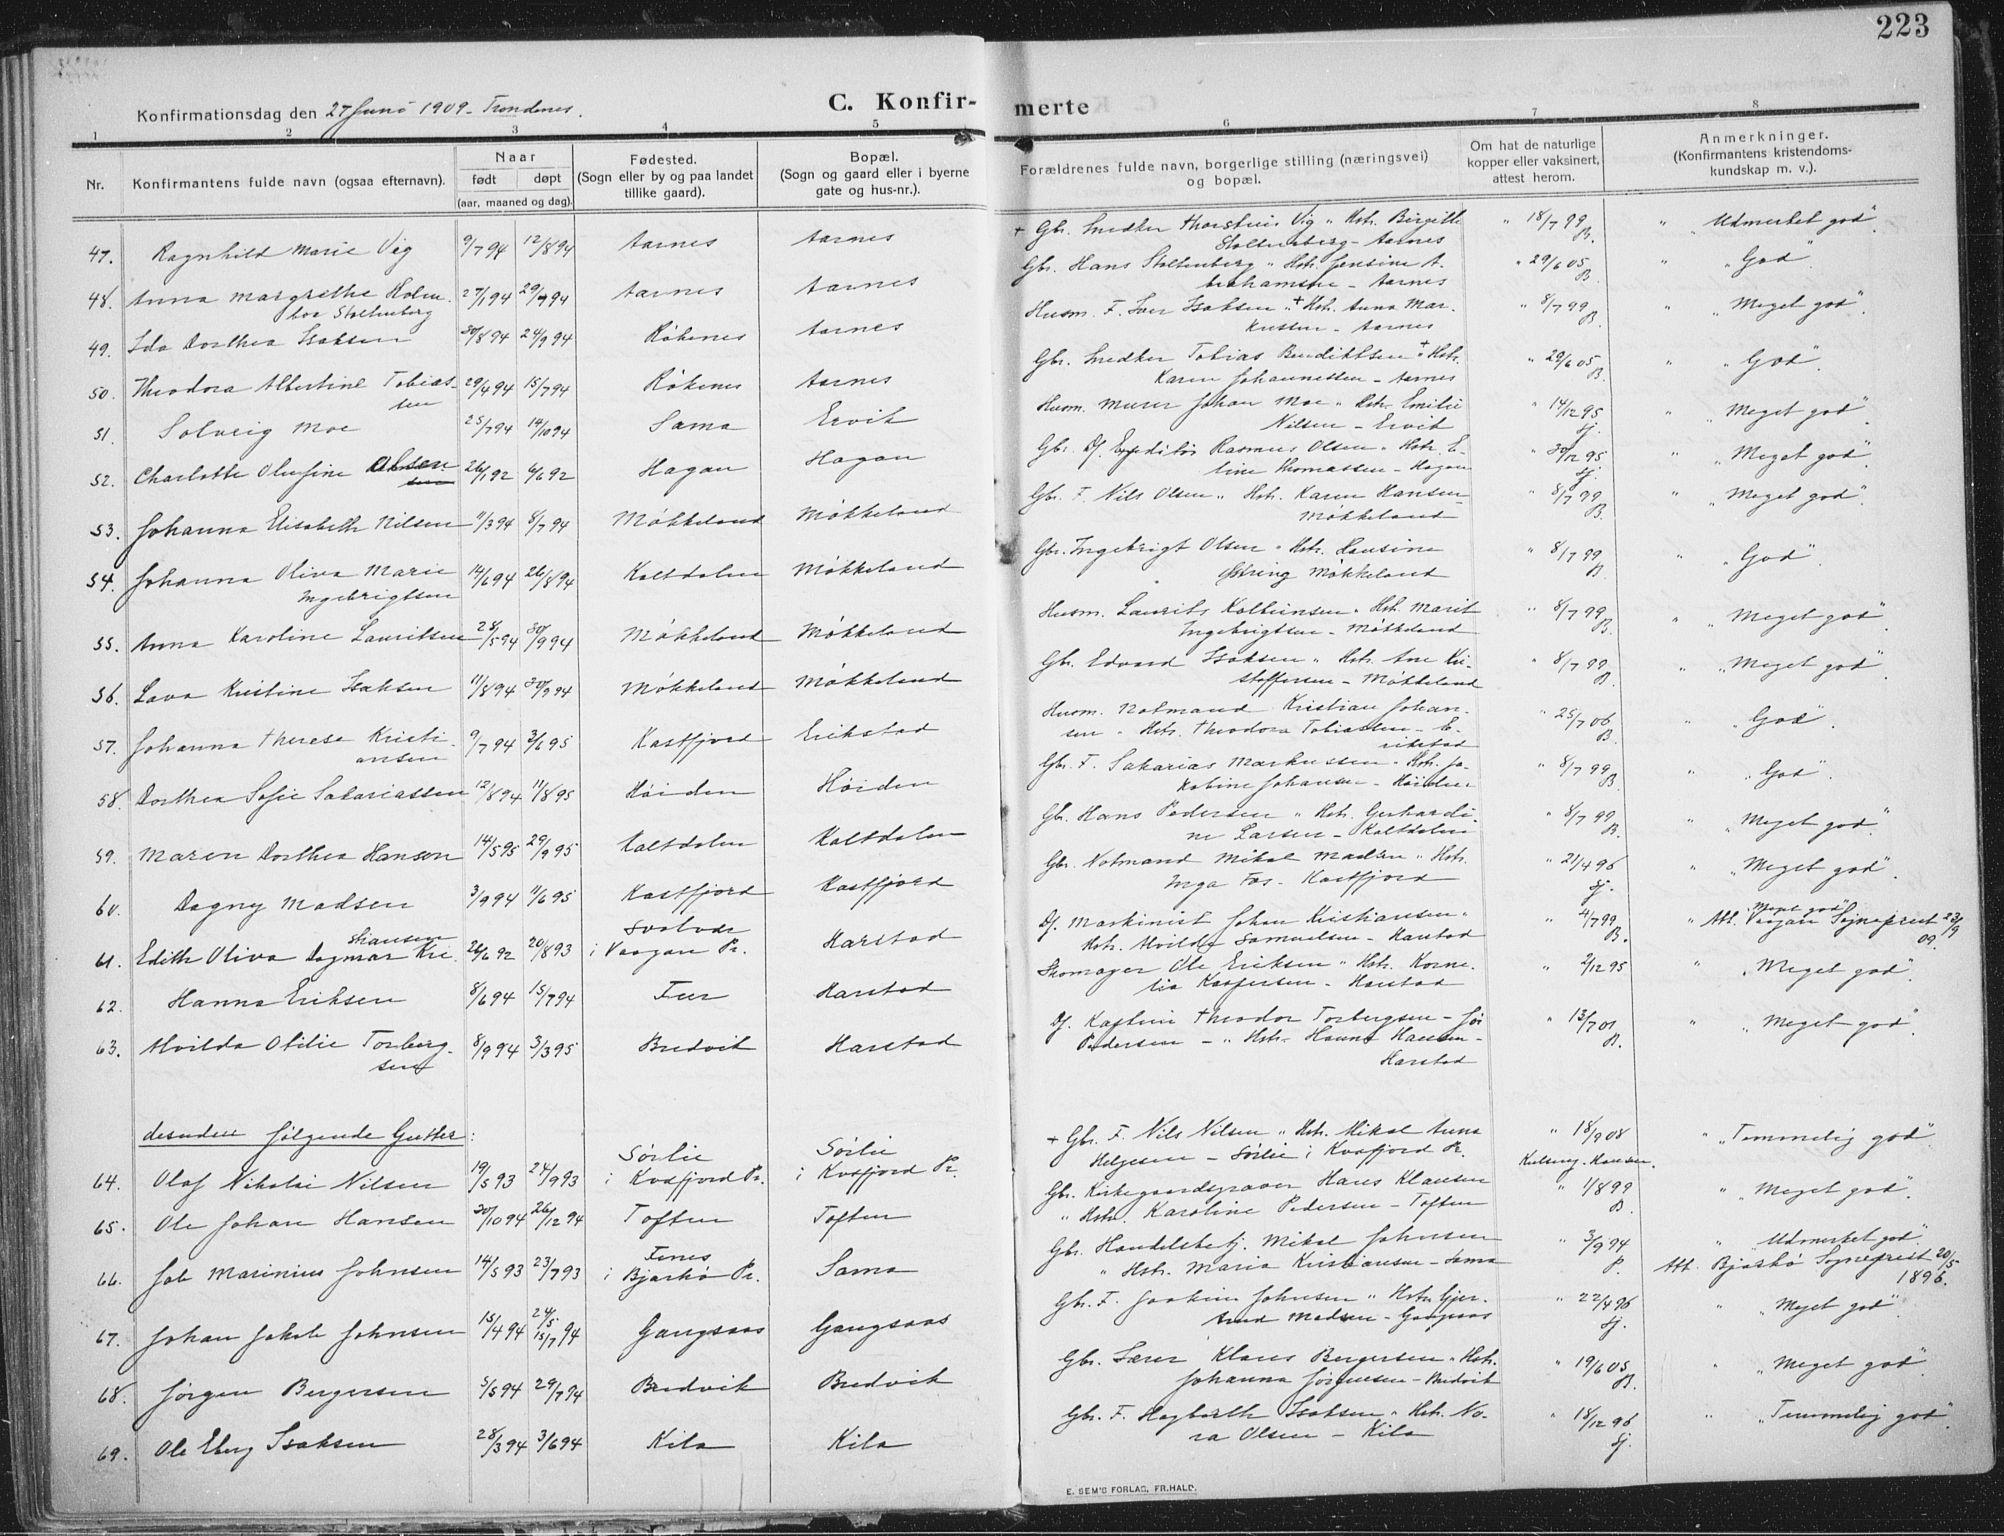 223
Konfirmationsdag den 27 Juni 1909 - Trondenes.
C. Konfir-
merte
1 2 3 4 5 6 7 8
Nr.
Konfirmantens fulde navn (ogsaa efternavn).
Naar
født døpt
(aar, maaned og dag).
Fødested.
(Sogn eller by og paa landet
tillike gaard).
Bopæl.
(Sogn og gaard eller i byerne
gate og hus-nr.).
Forældrenes fulde navn, borgerlige stilling (næringsvei)
og bopæl.
Om hat de naturlige
kopper eller vaksinert,
attest herom.
Anmerkninger.
(Konfirmantens kristendoms-
kundskap m. v.).
47. Ragnhild Marie Vig 9/7 94 12/8 94 Aarnes Aarnes + Gbr. Snedker Thorstein Vig " Hstr. Birgitte " 18/7 99 " "Udmerket god".
Stoltenberg - Aarnes B.
48. Anna Margrethe Holm- 27/1 94 29/7 94 Aarnes Aarnes Gbr. Hans Stoltenberg " Hstr. Jensine A- " 29/6 05 " "God".
boe Stoltenberg brahamsen - Aarnes B
49. Ida Dorthea Isaksen 30/8 94 24/9 94 Røkenes Aarnes Husm. F. Iver Isaksen " + Hstr. Anna Mar- " 8/7 99 " "Meget god".
kussen - Aarnes B.
50. Theodora Albertine Tobias- 29/4 94 15/7 94 Røkenes Aarnes Gbr. Snedker Tobias Bendiktsen " + Hstr. " 29/6 05 " "God".
sen Karen Johannessen - Aarnes B.
51. Solveig Moe 25/7 94 14/10 94 Sama Ervik Husm. Murer Johan Moe " Hstr. Emilie " 14/12 95 " "Meget god".
Nilsen - Ervik Sj.
52. Charlotte Olufine Olsen 26/1 92 6/6 92 Hagan Hagan Gbr. Df. Expeditör Rasmus Olsen " Hstr. E- " 30/12 95 " "Meget god".
line Thomassen - Hagan Sj.
53. Johanna Elisabeth Nilsen 11/3 94 8/7 94 Møkkeland Møkkeland Gbr. F. Nils Olsen " Hstr. Karen Hansen - " 8/7 99 " "Meget god".
Møkkeland B.
54. Johanna Oliva Marie 14/6 94 26/8 94 Kaltdalen Møkkeland Gbr. Ingebrigt Olsen " Hstr. Hansine " 8/7 99 " "God".
Ingebrigtsen Møkkeland B
55. Anna Karoline Lauritsen 28/5 94 30/9 94 Møkkeland Møkkeland Husm. Laurits Kolbeinsen " Hstr. Marit " 8/7 99 " "Meget god".
Ingebrigtsen - Møkkeland B.
56. Lava Kristine Isaksen 11/8 94 30/9 94 Møkkeland Møkkeland Gbr. Edvard Isaksen " Hstr. Ane Kri- " 8/7 99 " "Meget god".
stoffersen - Møkkeland B.
57. Johanna Therese Kristi- 9/7 94 3/6 95 Kastfjord Erikstad Husm. Notmand Kristian Johan- " 25/7 06 " "God".
ansen sen " Hstr. Theodora Tobiassen - E- B.
rikstad
58. Dorthea Sofie Sakariassen 12/8 94 11/8 95 Høiden Høiden Gbr. F. Sakarias Markussen " Hstr. Ja- " 8/7 99 " "God".
kobine Johansen - Høiden B
59. Maren Dorthea Hansen 14/5 95 29/9 95 Kaltdalen Kaltdalen Gbr. Hans Pedersen " Hstr. Gerhardi- " 8/7 99 " "Meget god".
ne Larsen - Kaltdalen B.
60. Dagny Madsen 3/9 94 11/6 95 Kastfjord Kastfjord Gbr. Notmand Mikal Madsen " Hstr. " 21/4 96 " "Meget god".
Inga Fos - Kastfjord Sj.
61. Edith Oliva Dagmar Kri- 26/6 92 20/8 93 Svolvær Harstad Df. Maskinist Johan Kristiansen " " 4/7 99 " "Meget god".
stiansen i Vaagan Pr. Hstr. Hvilda Samuelsen - Harstad B. Att. Vaagan Sogneprest 23/9 09.
62. Hanna Eriksen 8/6 94 15/7 94 Harstad Skomager Ole Eriksen " Hstr. Korne- " 2/12 95 " "Meget god".
lia Kaspersen - Harstad
63. Hvilda Otilie Torberg- 8/9 94 3/3 95 Bredvik Harstad Df. Kaptein Theodor Torbergsen - " 13/7 01 " "Meget god".
sen Pedersen - " Hstr. Hanna Hansen - B.
Harstad
desuden følgende Gutter:
64. Olaf Nikolai Nilsen 19/5 93 24/9 93 Sørlie Sørlie + Gbr. F. Nils Nilsen " Hstr. Mikal Anna " 18/9 08 " "Temmelig god".
i Kvæfjord Pr. i Kvæfjord Pr. Helgesen - Sørlie i Kvæfjord Pr. Hansen.
65. Ole Johan Hansen 30/10 94 26/12 94 Toften Toften Gbr. Kirkegaardsgraver Hans Klausen " 1/8 99 " "Meget god".
" Hstr. Karoline Pedersen - Toften B
66. Job Marinius Johnsen 14/5 93 23/7 93 Fenes Sama Gbr. Handelsbetj. Mikal Johnsen " 3/9 94 " "Udmerket god".
i Bjarkø Pr. " Hstr. Maria Kristiansen - Sama P. Att. Bjarkø Sogneprest 20/5 1896.
67. Johan Jakob Johnsen 15/4 94 24/5 15/7 94 Gangsaas Gangsaas Gbr. F. Joakim Johnsen " Hstr. Gjer- " 22/4 96 " "Meget god".
trud Madsen - Gangsaas Sj.
68. Jørgen Bergersen 5/5 94 29/7 94 Bredvik Bredvik Gbr. Lærer Klaus Bergersen " Hstr. " 19/6 05 " "Meget god".
Johanna Jørgensen - Bredvik B.
69. Ole Eberg Isaksen 28/3 94 3/6 94 Kila Kila Gbr. F. Hagbarth Isaksen " Hstr. No- " 18/12 96 " "Temmelig god".
ra Olsen - Kila Sj.
E. SEM'S FORLAG, FR.HALD.